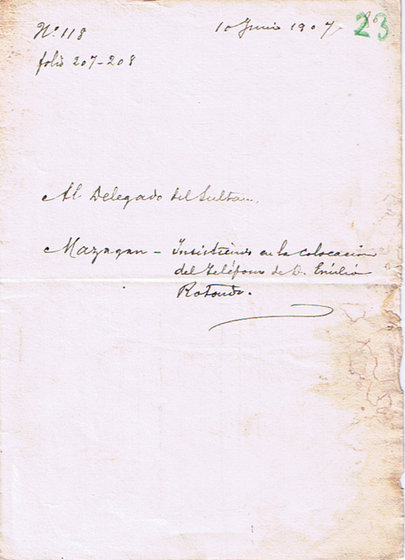 Nº 118
10 Junio 1907
23
folio 207-208
Al Delegado del Sultan.
Mazagan - Insistiendo en la colocacion
del teléfono de D. Emilio
Rotondo.